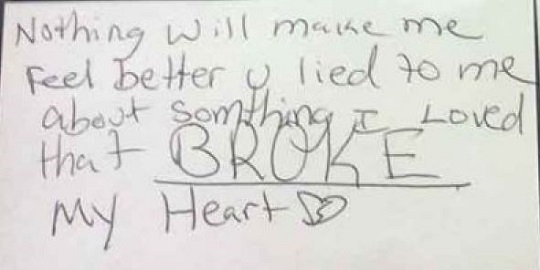 Nothing will make me
Feel better u lied to me
about somthing I Loved
that BROKE
My Heart